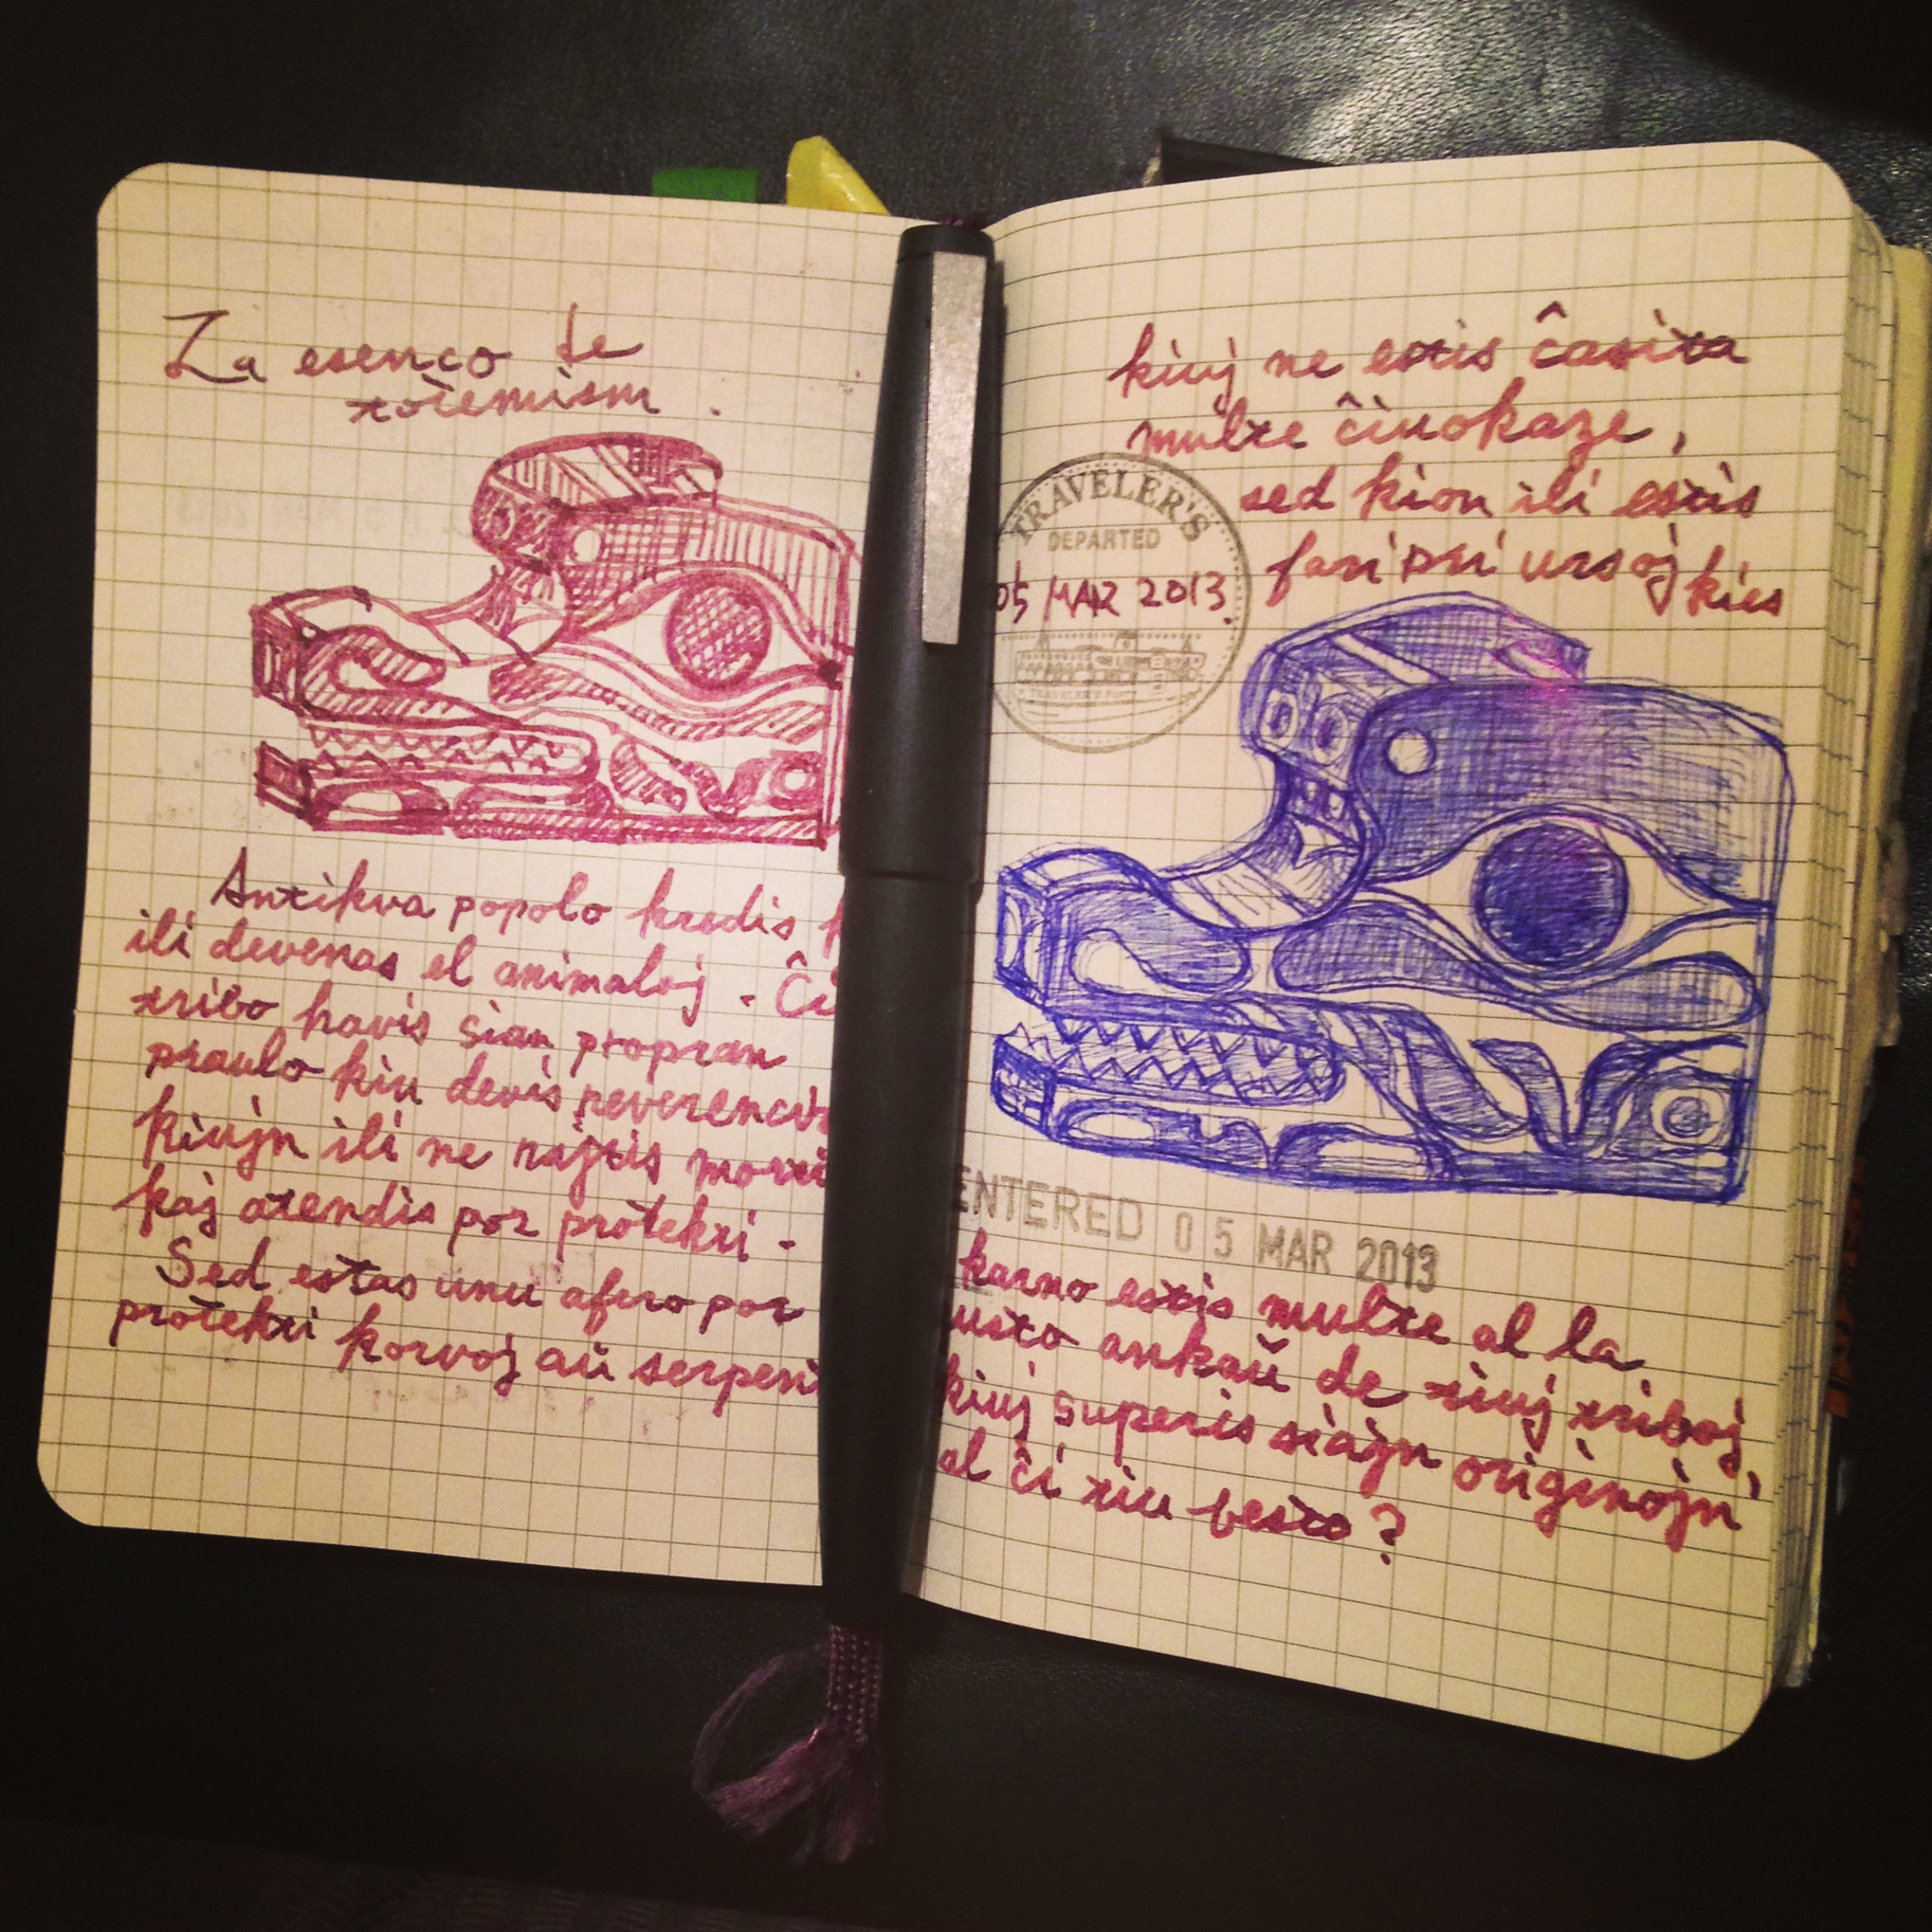 La esenco de
totemism.
Antikva popolo kredis k
ili devenas el animaloj. Ĉi
tribo havis sian propran
praulo kiu devis reverenci
kiujn ili ne rajtis morti
kaj atendis por protekti.
Sed estas unu afero por
protekti korvoj aŭ serpent
kiuj ne estis ĉasita
multe ĉiuokaze,
sed kion ili estis
fari pri ursoj kies
TRAVELER'S
DEPARTED
05 MAR 2013
ENTERED 05 MAR 2013
karno estis multe al la
usto ankaŭ de tiuj triboj,
kiuj superis siajn originojn
al ĉi tiu besto?